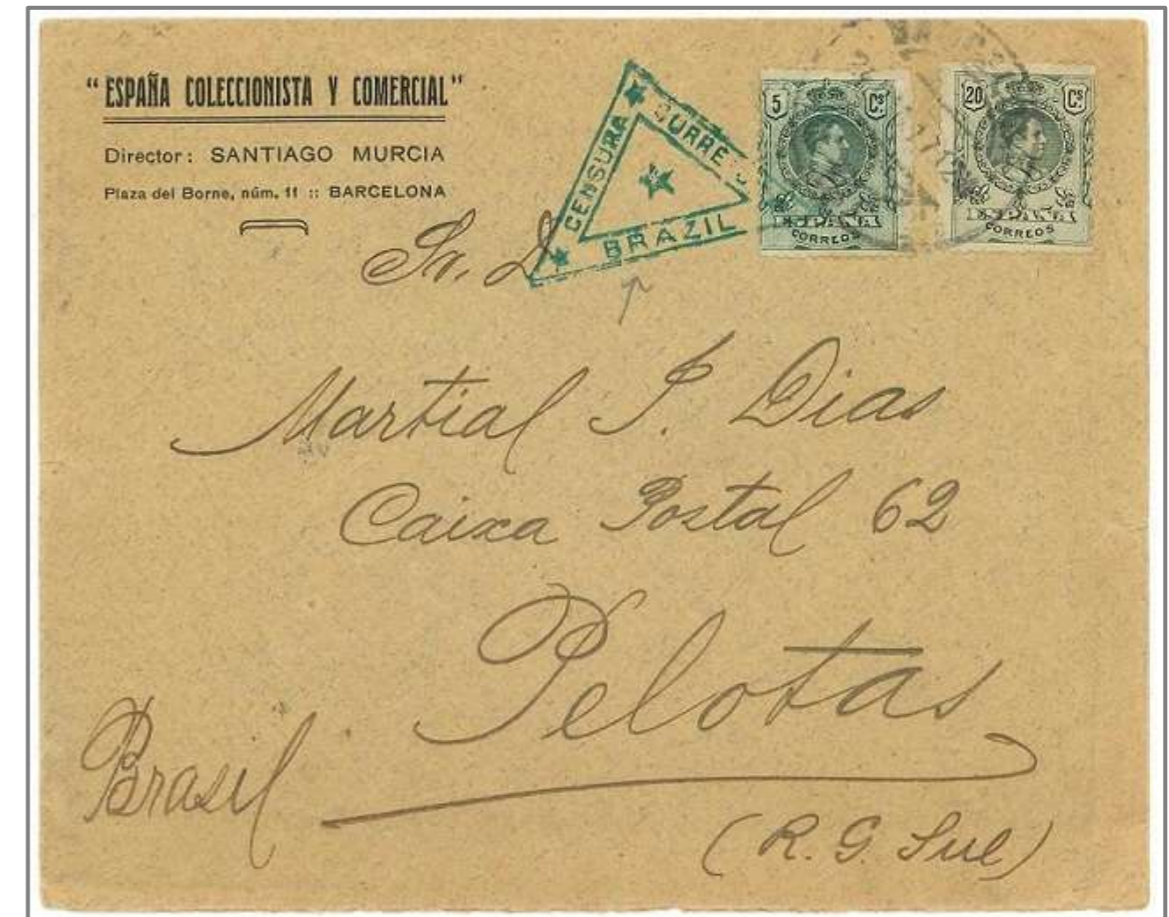 "ESPAÑA COLECCIONISTA Y COMERCIAL"
Director: SANTIAGO MURCIA
Plaza del Borne, núm. 11 :: BARCELONA
CENSURA
CORREIO
BRAZIL
5 Cs.
ESPAÑA
CORREOS
20 Cs.
ESPAÑA
CORREOS
Sr. D
Martial J. Dias
Caixa Postal 62
Pelotas
Brasil
(R. G. Sul)